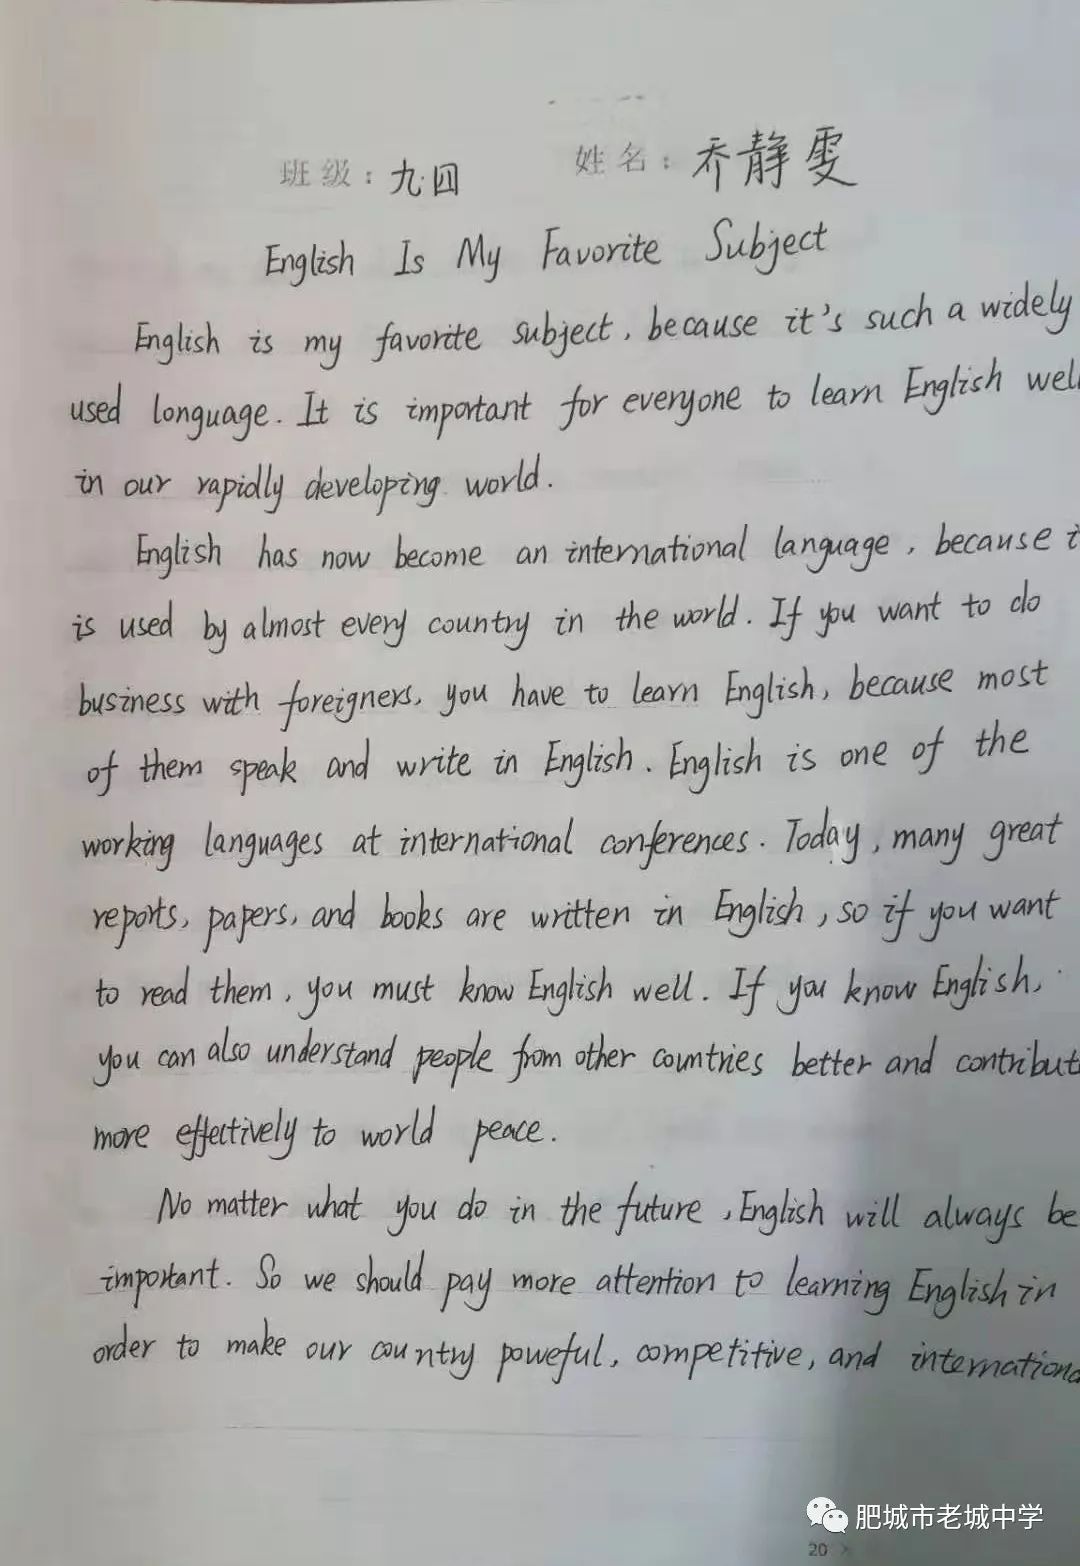 班级：九四 姓名：乔静雯
English Is My Favorite Subject
English is my favorite subject, because it's such a widely
used longuage. It is important for everyone to learn English well
in our rapidly developing world.
English has now become an international language, because i
is used by almost every country in the world. If you want to do
business with foreigners, you have to learn English, because most
of them speak and write in English. English is one of the
working languages at international conferences. Today, many great
reports, papers, and books are written in English, so if you want
to read them, you must know English well. If you know English,
you can also understand people from other countries better and contribut
more effectively to world peace.
No matter what you do in the future, English will always be
important. So we should pay more attention to learning English in
order to make our country poweful, competitive, and internationa
肥城市老城中学
20